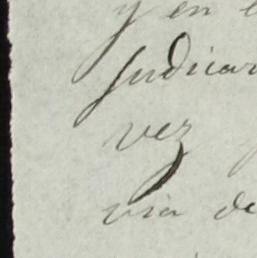 y en
Judicar
vez
via de